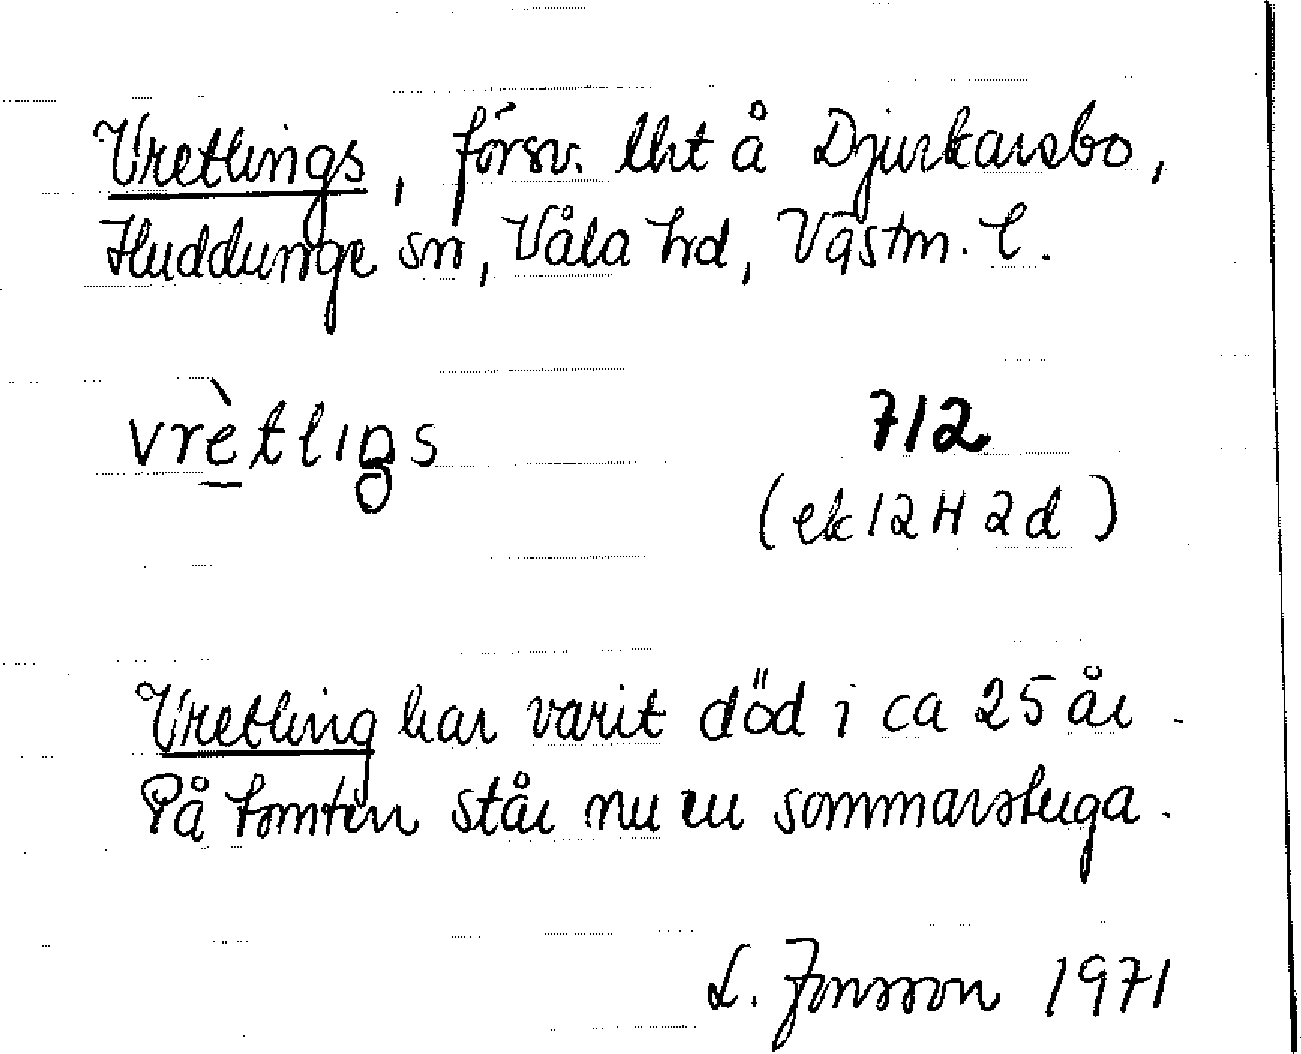 Vretlings, försv. lht å Djurkarsbo,
Huddunge sn, Våla hd, Västm. l.
vrètlıŋs
712
(ek 12 H 2 d)
Vretling har varit död i ca 25 år.
På tomten står nu en sommarstuga.
L. Jonsson 1971